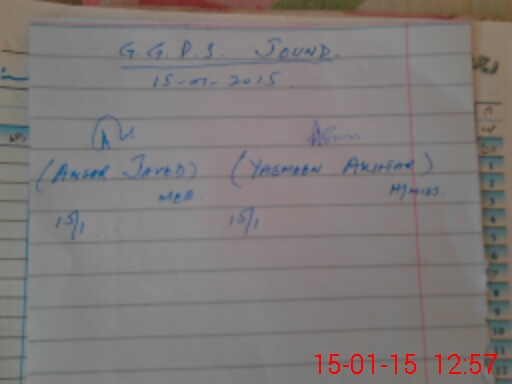 G.G.P.S. JOUND.
15-01-2015.
(ANSAR JAVED) (YASMEEN AKHTAR)
MEA H/miss.
15/1 15/1
15-01-15 12:57